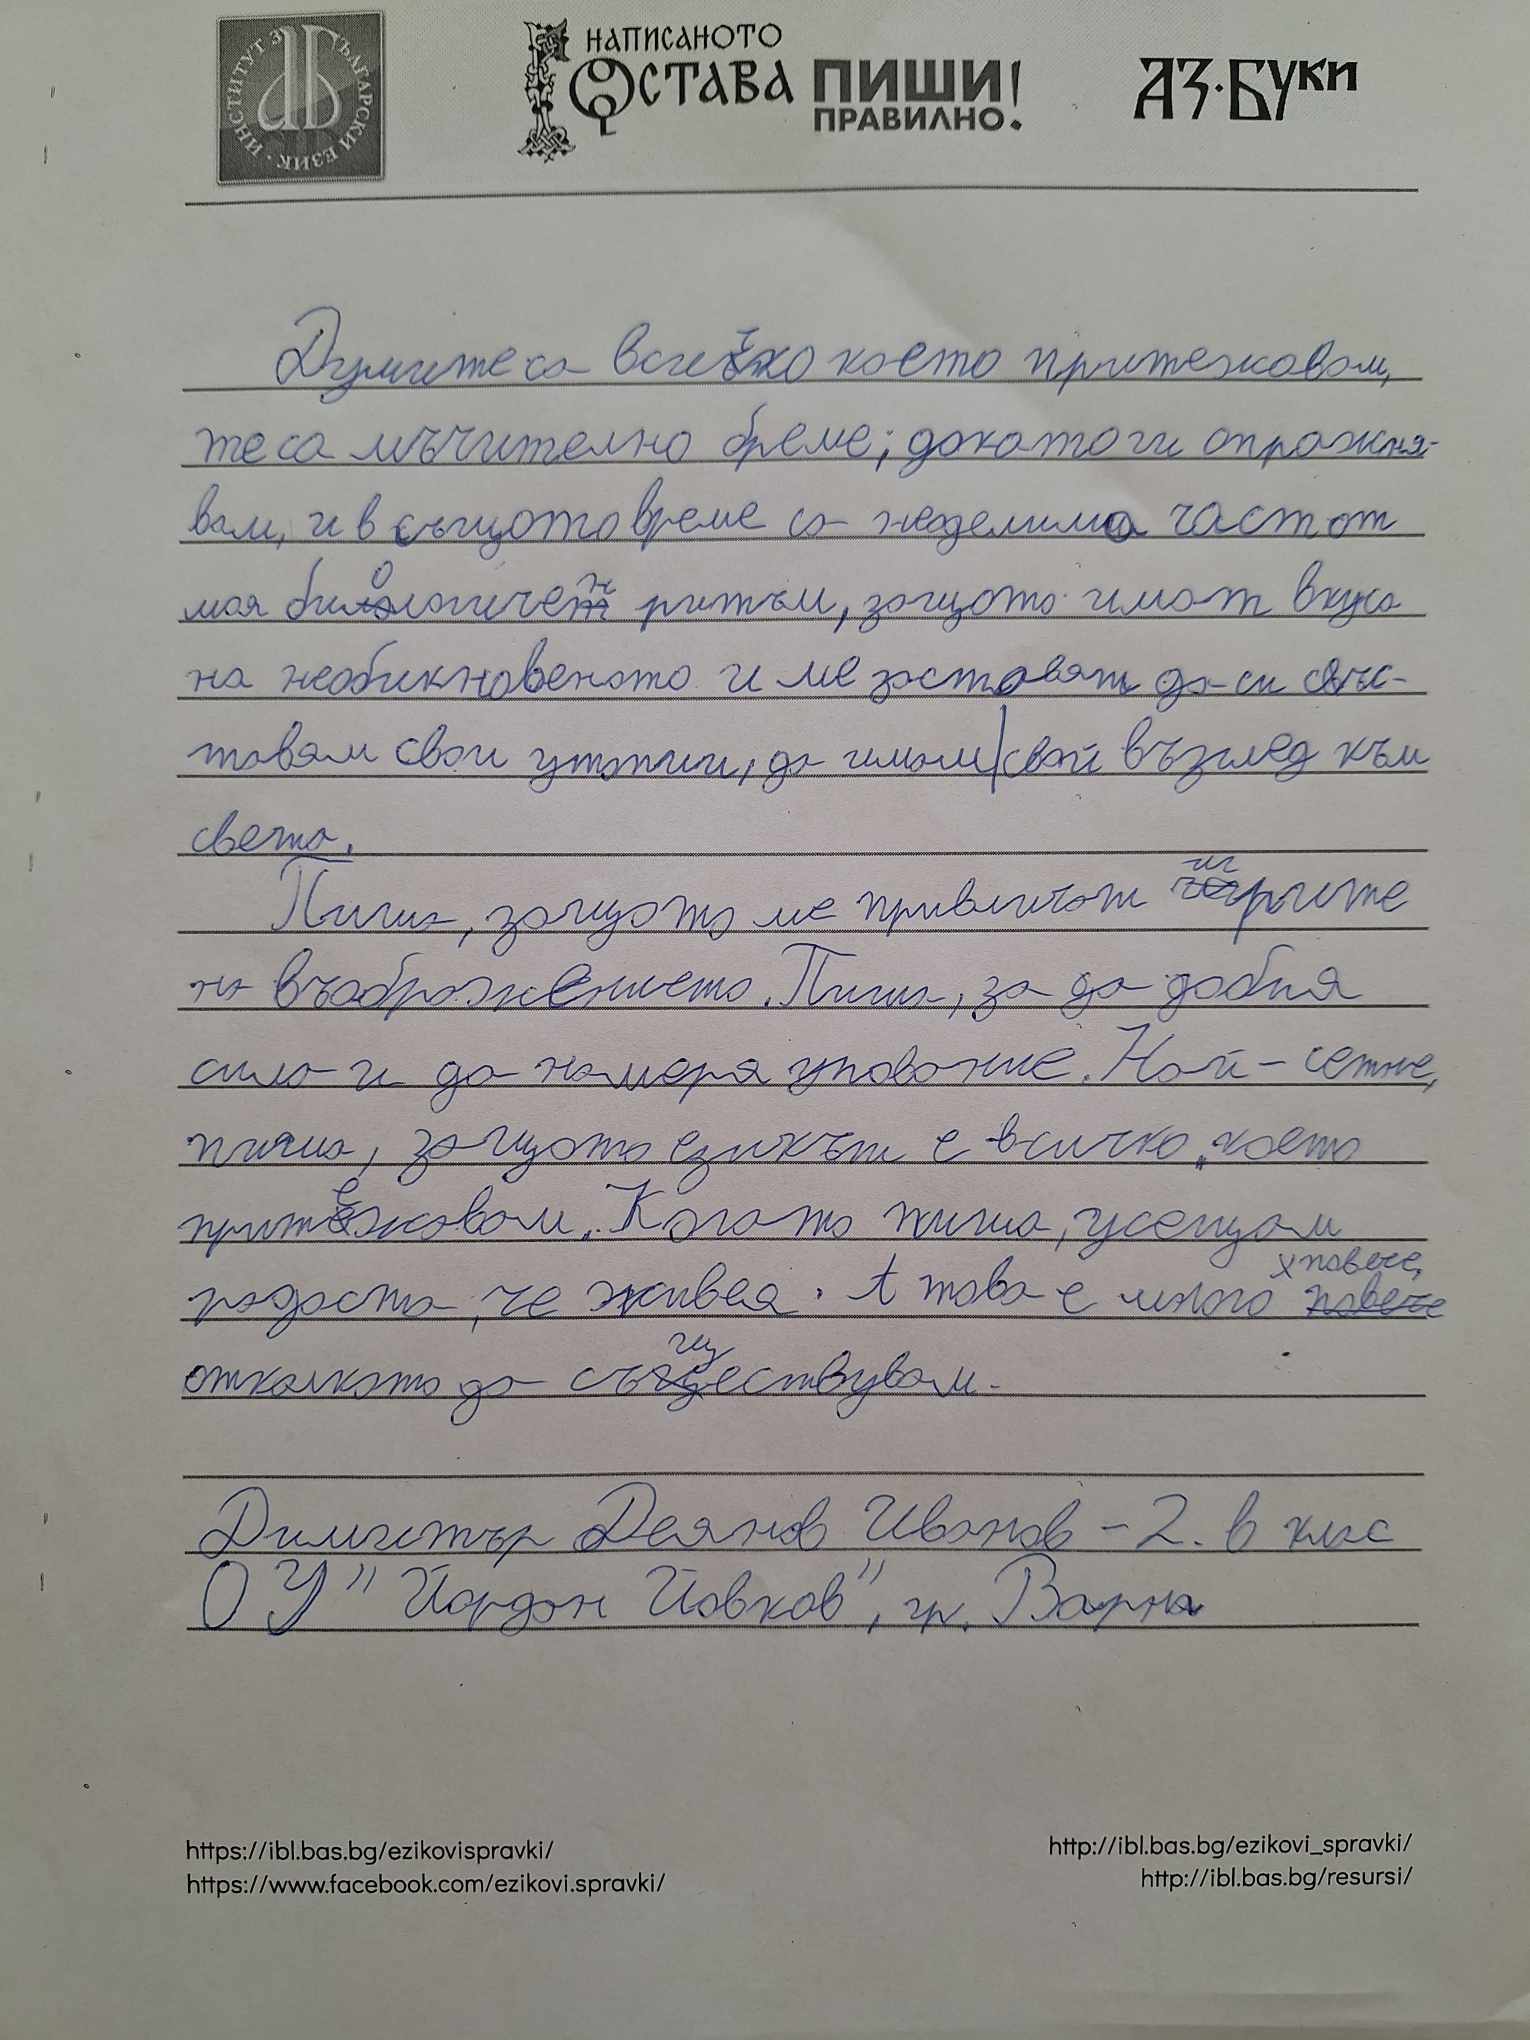 ИНСТИТУТ ЗА БЪЛГАРСКИ ЕЗИК
НАПИСАНОТО
ОСТАВА ПИШИ
ПРАВИЛНО!
АЗ·БУКИ
Думите са всичко което притежавам,
те са мъчително бреме; докато ги опразня-
вам, и в същото време са неделима част от
моя биологичен ритъм, защото имат вкуса
на необикновеното и ме заставят да си със-
тавям свои утопии, да имам свой възглед към
света.
Пиша, защото ме привличат игрите
на въображението. Пиша, за да добия
сила и да намеря упование. Най-сетне,
пиша, защото езикът е всичко, което
притежавам. Когато пиша, усещам
радостта, че живея. А това е много повече,
отколкото да съществувам.
Димитър Деянов Иванов - 2. в клас
ОУ "Йордан Йовков", гр. Варна
https://ibl.bas.bg/ezikovispravki/
http://ibl.bas.bg/ezikovi_spravki/
https://www.facebook.com/ezikovi.spravki/
http://ibl.bas.bg/resursi/